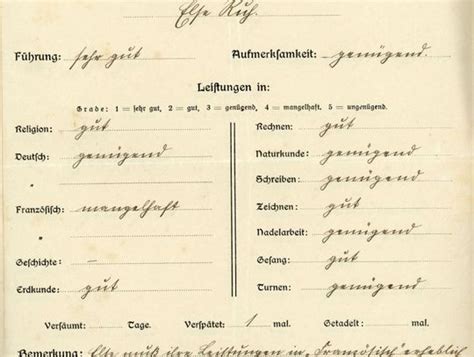 Else Ruf.
Führung: sehr gut Aufmerksamkeit: genügend.
Leistungen in:
Grade: 1 = sehr gut, 2 = gut, 3 = genügend, 4 = mangelhaft. 5 = ungenügend.
Religion: gut Rechnen: gut
Deutsch: genügend Naturkunde: genügend
Schreiben: genügend
Französisch: mangelhaft Zeichnen: gut
Nadelarbeit: genügend
Geschichte: Gesang: gut
Erdkunde: gut Turnen: genügend
Versäumt: Tage. Verspätet: 1 mal. Getadelt: mal.
Bemerkung: Else muß ihre Leistungen in „Französisch" erheblich